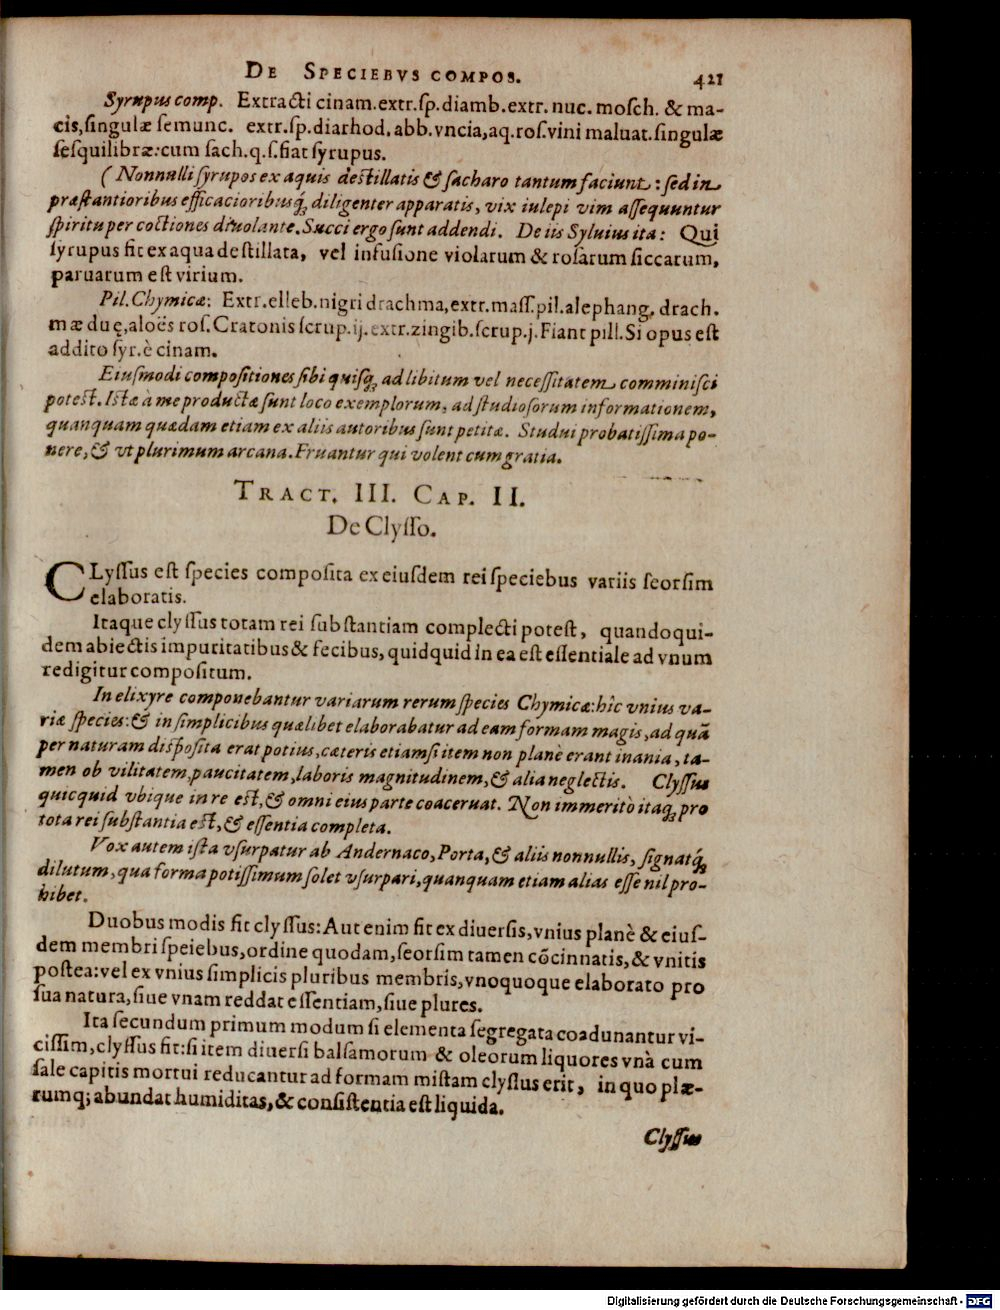 DE SPECIEBVS COMPOS. 421
Syrupus comp. Extracti cinam.extr.sp.diamb.extr. nuc. mosch. & ma-
cis,singulæ semunc. extr.sp.diarhod. abb. vncia,aq.ros.vini maluat.singulæ
sesquilibræ:cum sach.q.s.fiat syrupus.
(Nonnulli syrupos ex aquis destillatis & sacharo tantum faciunt : sed in
præstantioribus efficacioribusq́; diligenter apparatis, vix iulepi vim assequuntur
spiritu per coctiones diuolante. Succi ergo sunt addendi. De iis Syluius ita: Qui
syrupus fit ex aqua destillata, vel infusione violarum & rosarum siccarum,
paruarum est virium.
Pil. Chymicæ: Extr.elleb.nigri drachma,extr.mass.pil.alephang. drach.
mæ duę,aloës ros. Cratonis scrup.ij.extr.zingib.scrup.j.Fiant pill.Si opus est
addito syr.è cinam.
Eiusmodi compositiones sibi quisq; ad libitum vel necessitatem comminisci
potest. Istæ à me productæ sunt loco exemplorum, ad studiosorum informationem,
quanquam quædam etiam ex aliis autoribus sunt petitæ. Studui probatissima po-
nere, & vt plurimum arcana. Fruantur qui volent cum gratia.
TRACT. III. CAP. II.
De Clysso.
CLyssus est species composita ex eiusdem rei speciebus variis seorsim
elaboratis.
Itaque clyssus totam rei substantiam complecti potest, quandoqui-
dem abiectis impuritatibus & fecibus, quidquid in ea est essentiale ad vnum
redigitur compositum.
In elixyre componebantur variarum rerum species Chymicæ: hîc vnius va-
riæ species: & in simplicibus quælibet elaborabatur ad eam formam magis, ad quã
per naturam disposita erat potius, cæteris etiamsi item non planè erant inania, ta-
men ob vilitatem,paucitatem,laboris magnitudinem,& alia neglectis. Clyssus
quicquid vbique in re est,& omni eius parte coaceruat. Non immeritò itaq; pro
tota rei substantia est,& essentia completa.
Vox autem ista vsurpatur ab Andernaco, Porta, & aliis nonnullis, signatq́;
dilutum, qua forma potissimum solet vsurpari, quanquam etiam alias esse nil pro-
hibet.
Duobus modis fit clyssus: Aut enim fit ex diuersis,vnius planè & eius-
dem membri speiebus,ordine quodam,seorsim tamen cõcinnatis,& vnitis
postea:vel ex vnius simplicis pluribus membris,vnoquoque elaborato pro
sua natura, siue vnam reddat essentiam,siue plures.
Ita secundum primum modum si elementa segregata coadunantur vi-
cissim, clyssus fit:si item diuersi balsamorum & oleorum liquores vnà cum
sale capitis mortui reducantur ad formam mistam clyssus erit, in quo plæ-
rumq; abundat humiditas,& consistentia est liquida.
Clyssus
Digitalisierung gefördert durch die Deutsche Forschungsgemeinschaft - DFG